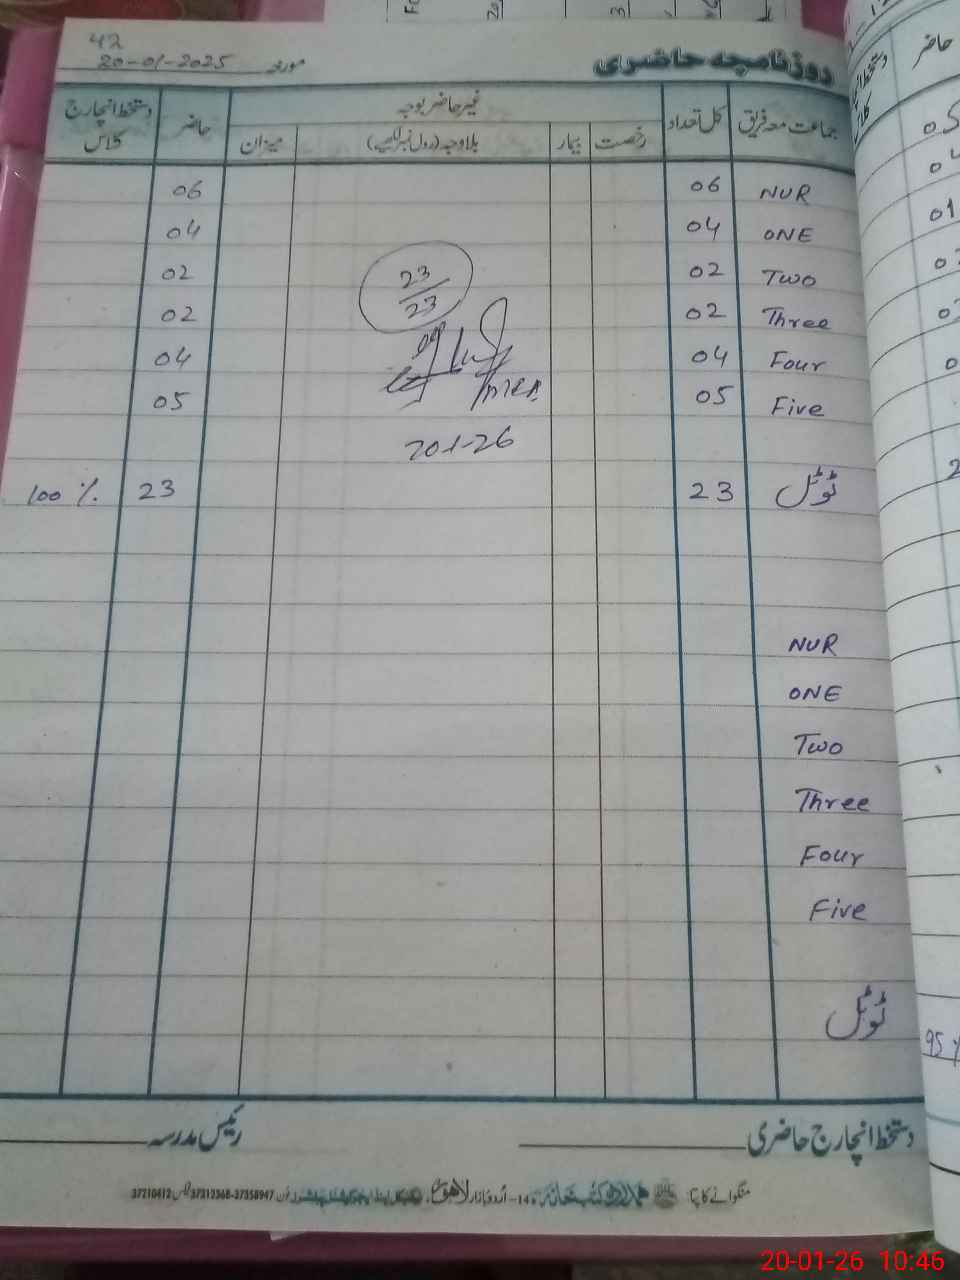 42
روزنامچہ حاضری
مورخہ 20-01-2025
جماعت معہ فریق کل تعداد غیر حاضر بوجہ حاضر دستخط انچارج کلاس
رخصت بیمار بلاوجہ (رول نمبر لکھیے) میزان
NUR 06 06
ONE 04 04
Two 02 02
Three 02 02
Four 04 04
Five 05 05
23
23
20-1-26
ٹوٹل 23 23 100 %
NUR
ONE
Two
Three
Four
Five
ٹوٹل
95 %
دستخط انچارج حاضری رئیس مدرسہ
منگوانے کا پتا: کتب خانہ 14-اُردو بازار لاہور فون 37312368-37358947 فیکس 37210412
20-01-26 10:46